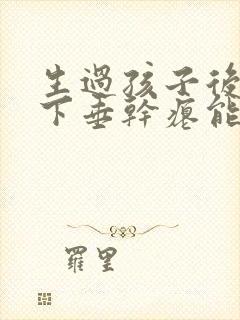 生過孩子後
下垂幹癟能
羅里